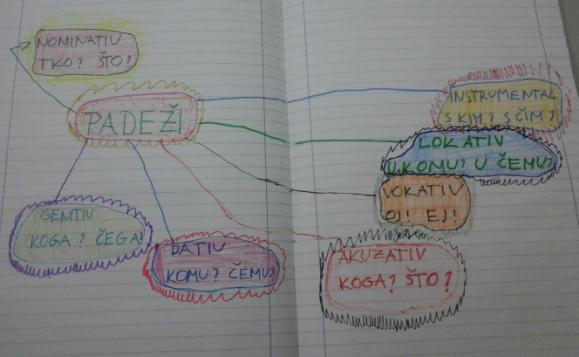 NOMINATIV
TKO? ŠTO?
PADEŽI
INSTRUMENTAL
S KIM? S ČIM?
LOKATIV
U KOMU? U ČEMU?
VOKATIV
OJ! EJ!
GENITIV
KOGA? ČEGA?
DATIV
KOMU? ČEMU?
AKUZATIV
KOGA? ŠTO?